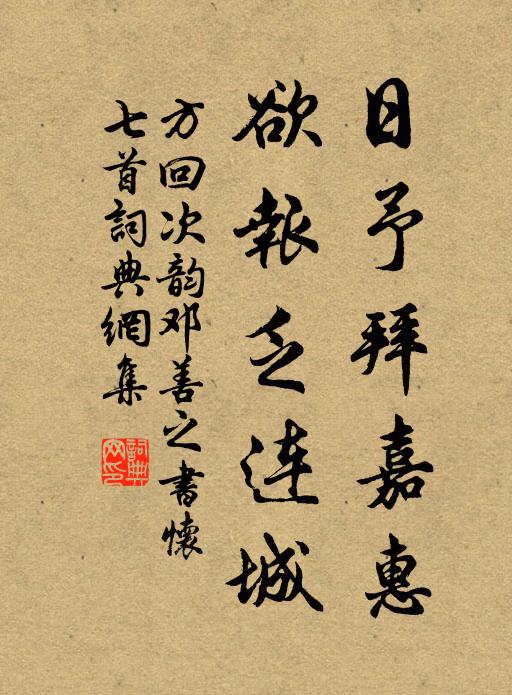 日予拜嘉惠
欲報乏連城
方回次韵邓善之書懷
七首詞典網集
詞典
网印